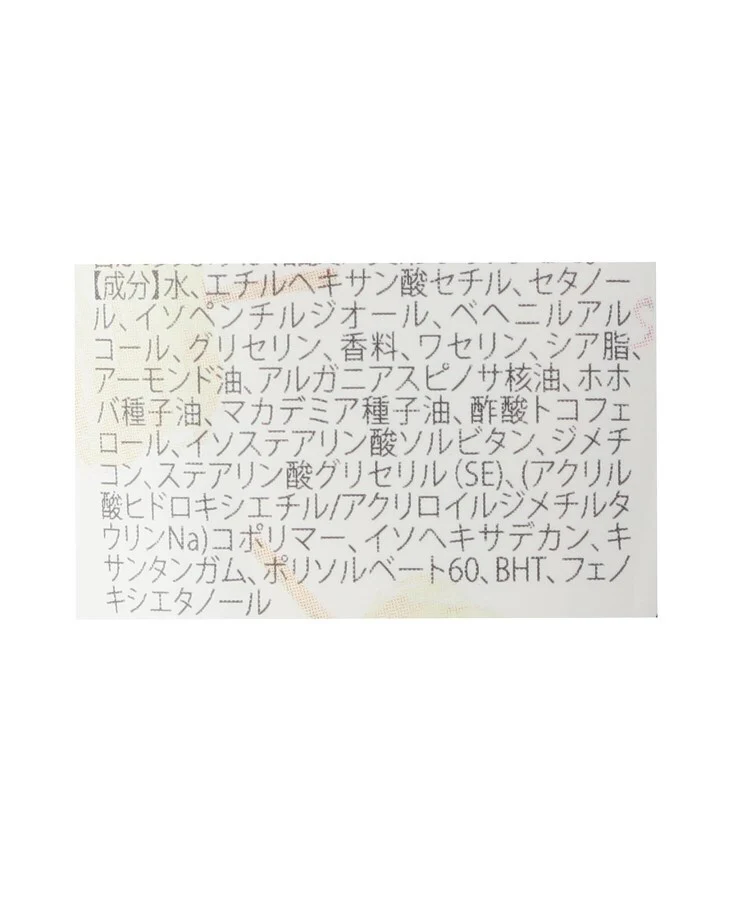 【成分】水、エチルヘキサン酸セチル、セタノー
ル、イソペンチルジオール、ベヘニルアル
コール、グリセリン、香料、ワセリン、シア脂、
アーモンド油、アルガニアスピノサ核油、ホホ
バ種子油、マカデミア種子油、酢酸トコフェ
ロール、イソステアリン酸ソルビタン、ジメチ
コン、ステアリン酸グリセリル（SE）、(アクリル
酸ヒドロキシエチル/アクリロイルジメチルタ
ウリンNa)コポリマー、イソヘキサデカン、キ
サンタンガム、ポリソルベート60、BHT、フェノ
キシエタノール